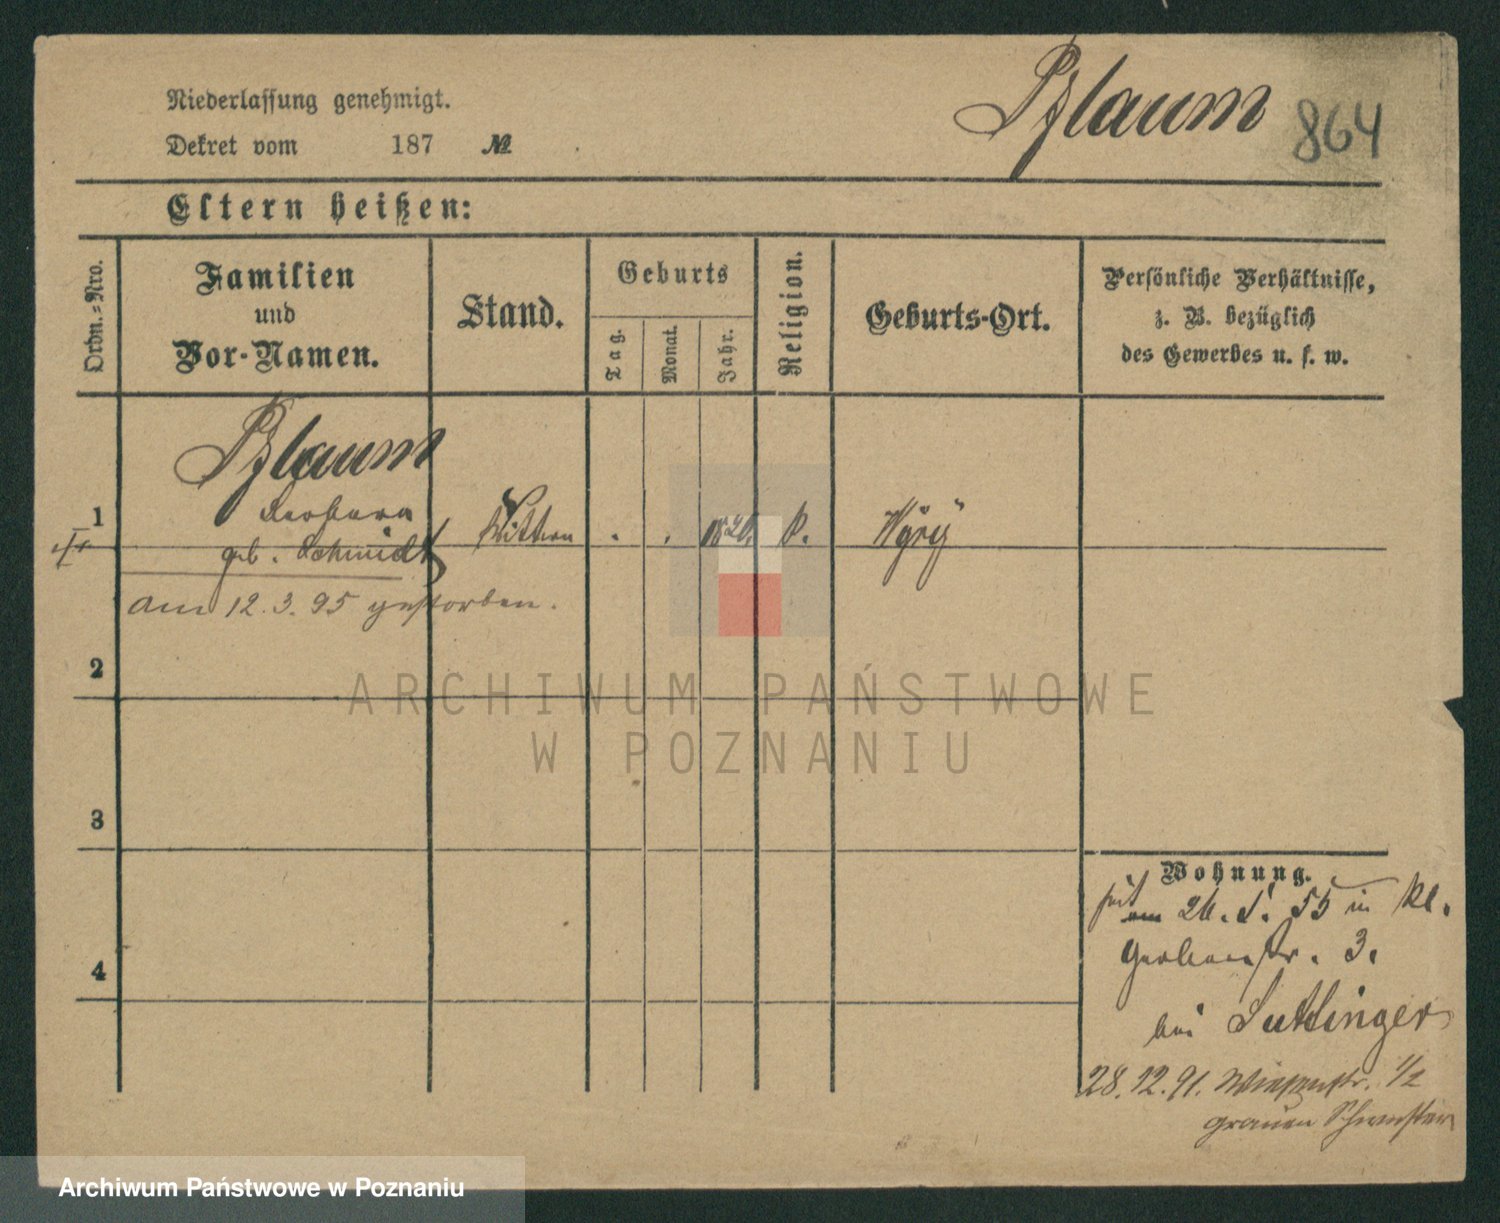 Niederlassung genehmigt.
Dekret vom 187 №
Pflaum
864
Eltern heißen:
Ordn.-Nro.
Familien
und
Vor-Namen.
Stand.
Geburts
Tag.
Monat.
Jahr.
Religion.
Geburts-Ort.
Persönliche Verhältnisse,
z. B. bezüglich
des Gewerbes u. s. w.
Pflaum
1 Barbara
geb. Schmidt
am 12.3.95 gestorben.
2
3
4
Wohnung.
seit 55 in Kl.
Gerberstr. 3.
bei
28.12.91. Wiesenstr. 1/2
grauen Schwestern
ARCHIWUM PAŃSTWOWE
W POZNANIU
Archiwum Państwowe w Poznaniu